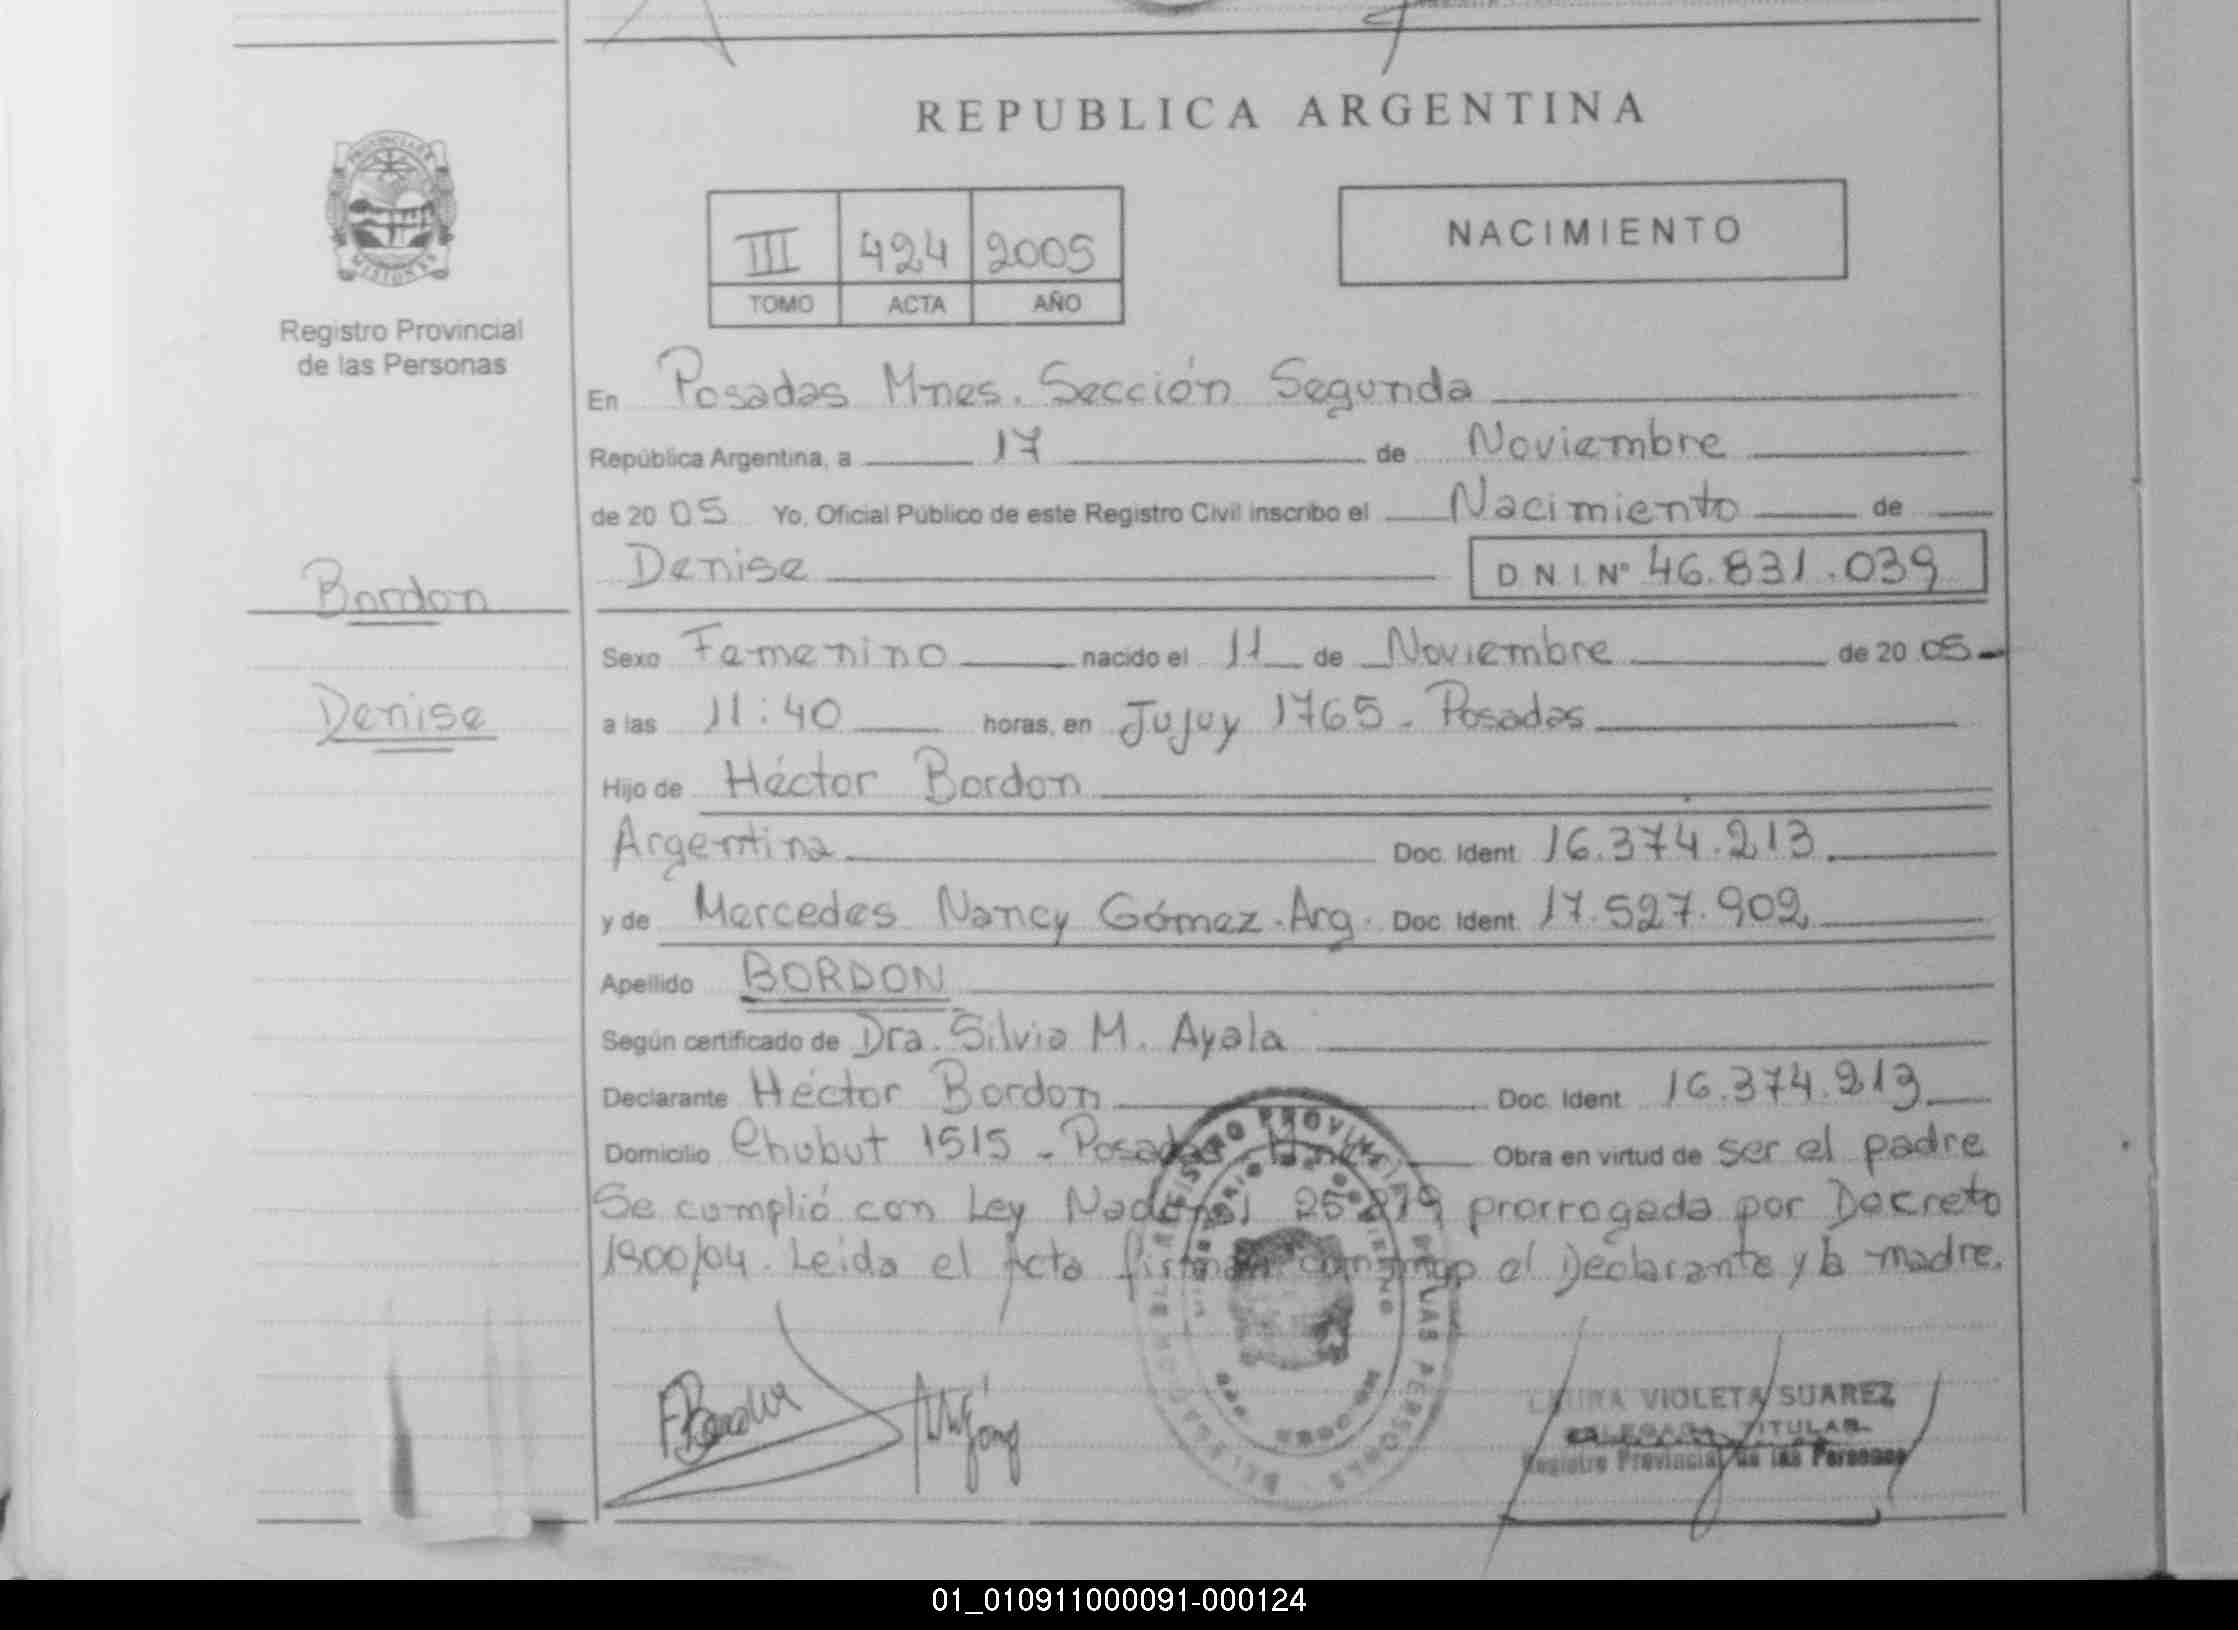 REPUBLICA ARGENTINA
PROVINCIA DE
MISIONES
Registro Provincial
de las Personas
III 424 2005
TOMO ACTA AÑO
NACIMIENTO
En Posadas Mnes. Sección Segunda
República Argentina, a 17 de Noviembre
de 20 05 Yo, Oficial Público de este Registro Civil inscribo el Nacimiento de
Denise D N I Nº 46.831.039
Bordon
Sexo Femenino nacido el 11 de Noviembre de 20 05
Denise
a las 11:40 horas, en Jujuy 1765 - Posadas
Hijo de Héctor Bordon
Argentina Doc. Ident. 16.374.213
y de Mercedes Nancy Gómez - Arg. Doc. Ident. 17.527.902
Apellido BORDON
Según certificado de Dra. Silvia M. Ayala
Declarante Héctor Bordon Doc. Ident. 16.374.213
Domicilio Chubut 1515 - Posadas Mnes Obra en virtud de ser el padre
Se cumplió con Ley Nacional 25 819 prorrogada por Decreto
1900/04. Leida el Acta firman conmigo el Declarante y la madre.
REGISTRO PROVINCIAL DE LAS PERSONAS
LAURA VIOLETA SUAREZ
DELEGADA TITULAR
Registro Provincial de las Personas
01_010911000091-000124